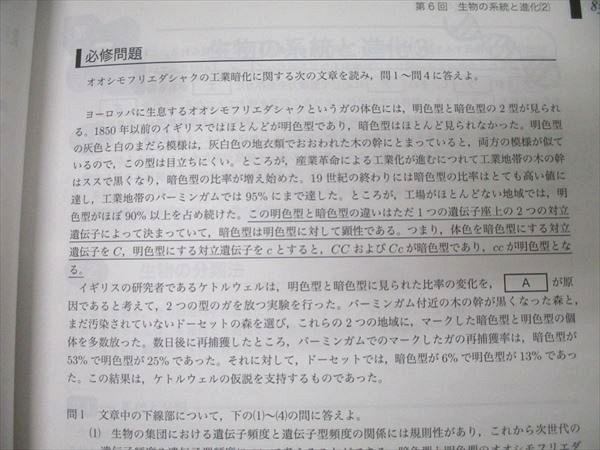 第6回 生物の系統と進化(2)
必修問題
オオシモフリエダシャクの工業暗化に関する次の文章を読み，問1～問4に答えよ。
ヨーロッパに生息するオオシモフリエダシャクというガの体色には，明色型と暗色型の2型が見られ
る。1850年以前のイギリスではほとんどが明色型であり，暗色型はほとんど見られなかった。明色型
の灰色と白のまだら模様は，灰白色の地衣類でおおわれた木の幹にとまっていると，両方の模様が似て
いるので，この型は目立ちにくい。ところが，産業革命による工業化が進むにつれて工業地帯の木の幹
はススで黒くなり，暗色型の比率が増え始めた。19世紀の終わりには暗色型の比率はとても高い値に
達し，工業地帯のバーミンガムでは95％にまで達した。ところが，工場がほとんどない地域では，明
色型がほぼ90％以上を占め続けた。この明色型と暗色型の違いはただ1つの遺伝子座上の2つの対立
遺伝子によって決まっていて，暗色型は明色型に対して顕性である。つまり，体色を暗色型にする対立
遺伝子をC，明色型にする対立遺伝子をcとすると，CCおよびCcが暗色型であり，ccが明色型とな
る。
イギリスの研究者であるケトルウェルは，明色型と暗色型に見られた比率の変化を， A が原
因であると考えて，2つの型のガを放つ実験を行った。バーミンガム付近の木の幹が黒くなった森と，
まだ汚染されていないドーセットの森を選び，これらの2つの地域に，マークした暗色型と明色型の個
体を多数放った。数日後に再捕獲したところ，バーミンガムでのマークしたガの再捕獲率は，暗色型が
53％で明色型が25％であった。それに対して，ドーセットでは，暗色型が6％で明色型が13％であっ
た。この結果は，ケトルウェルの仮説を支持するものであった。
問1 文章中の下線部について，下の(1)～(4)の問に答えよ。
(1) 生物の集団における遺伝子頻度と遺伝子型頻度の関係には規則性があり，これから次世代の